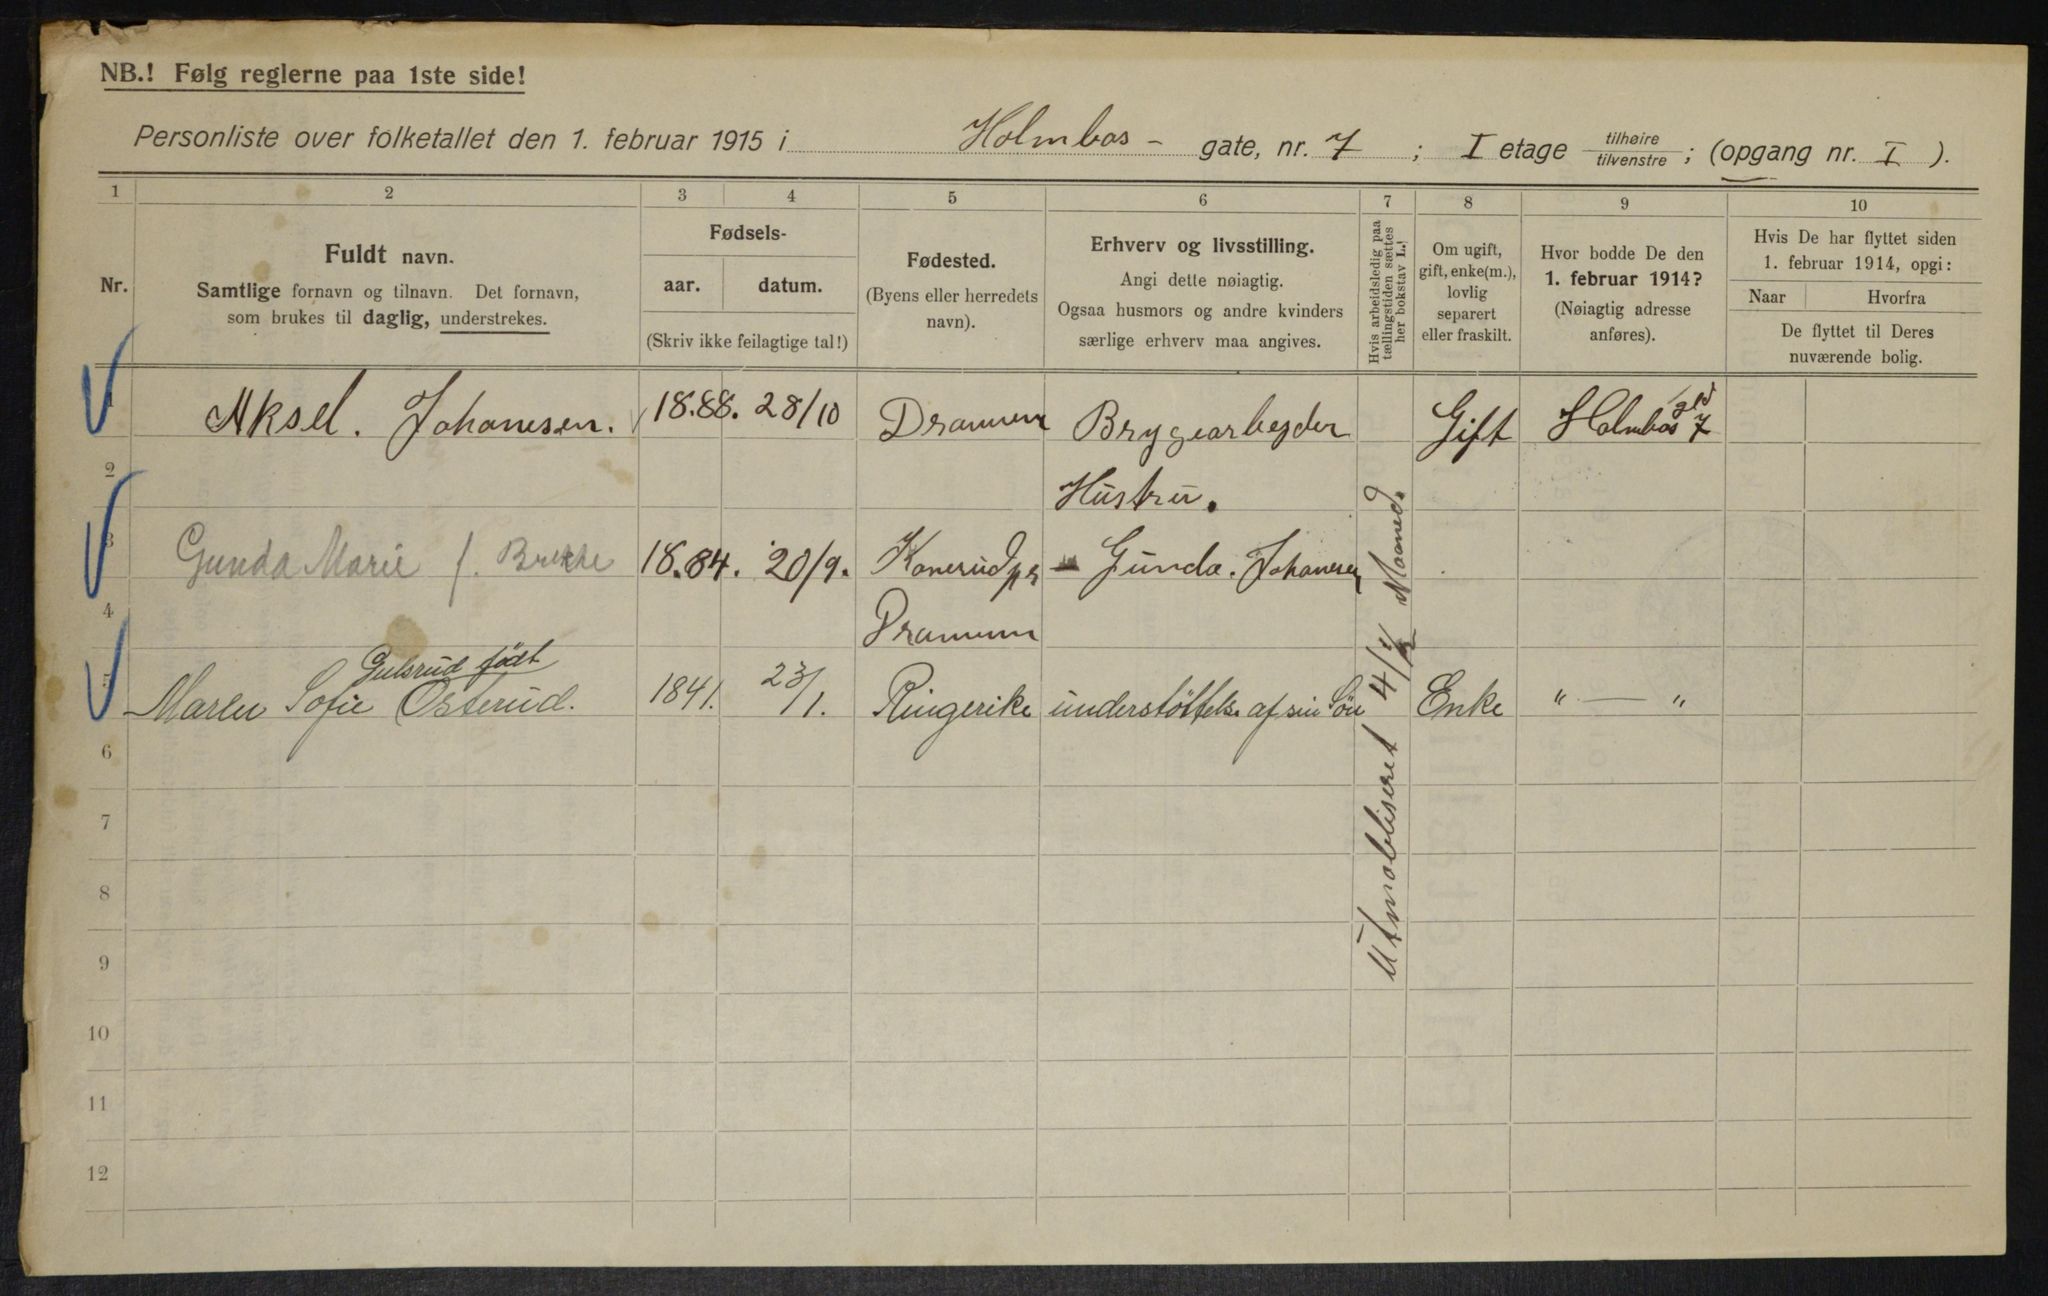 NB.! Følg reglerne paa 1ste side!
Personliste over folketallet den 1. februar 1915 i Holmbos - gate, nr. 7 ; I etage tilhøire tilvenstre ; (opgang nr. I ).
1 2 3 4 5 6 7 8 9 10
Nr.
Fuldt navn.
Samtlige fornavn og tilnavn. Det fornavn,
som brukes til daglig, understrekes.
Fødsels-
aar. datum.
(Skriv ikke feilagtige tal!)
Fødested.
(Byens eller herredets
navn).
Erhverv og livsstilling.
Angi dette nøiagtig.
Ogsaa husmors og andre kvinders
særlige erhverv maa angives.
Hvis arbeidsledig paa
tællingstiden sættes
her bokstav L.!
Om ugift,
gift, enke(m.),
lovlig
separert
eller fraskilt.
Hvor bodde De den
1. februar 1914?
(Nøiagtig adresse
anføres).
Hvis De har flyttet siden
1. februar 1914, opgi:
Naar Hvorfra
De flyttet til Deres
nuværende bolig.
1 Aksel. Johanesen. 18.88. 28/10 Dramen Brygearbejder Gift Holmbos gd 7
2 Hustru.
3 Gunda Marie f. 18.84. 20/9. Gunda. Johanesen
4 Dramenn
Gulsrud födt
5 Maren Sofie Østerud. 1841. 23/1. Ringerike understöttelse af sin Sön Enke " — "
Utmobliseret 4 1/2 Maaned.
6
7
8
9
10
11
12